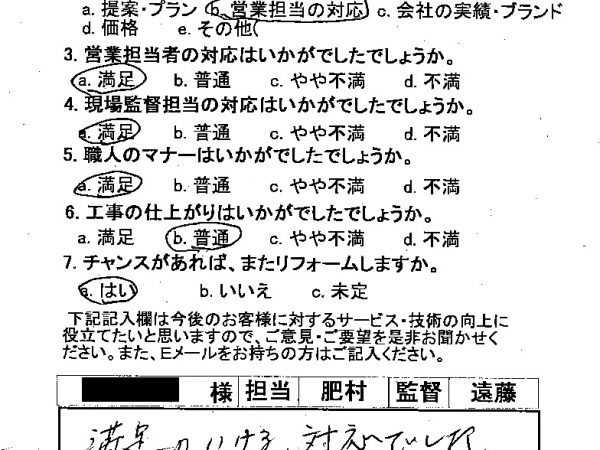 a. 提案・プラン b. 営業担当の対応 c. 会社の実績・ブランド
d. 価格 e. その他(
3. 営業担当者の対応はいかがでしたでしょうか。
a. 満足 b. 普通 c. やや不満 d. 不満
4. 現場監督担当の対応はいかがでしたでしょうか。
a. 満足 b. 普通 c. やや不満 d. 不満
5. 職人のマナーはいかがでしたでしょうか。
a. 満足 b. 普通 c. やや不満 d. 不満
6. 工事の仕上がりはいかがでしたでしょうか。
a. 満足 b. 普通 c. やや不満 d. 不満
7. チャンスがあれば、またリフォームしますか。
a. はい b. いいえ c. 未定
下記記入欄は今後のお客様に対するサービス・技術の向上に
役立てたいと思いますので、ご意見・ご要望を是非お聞かせく
ださい。また、Eメールをお持ちの方はご記入ください。
様 担当 肥村 監督 遠藤
満足のいける、対応でした